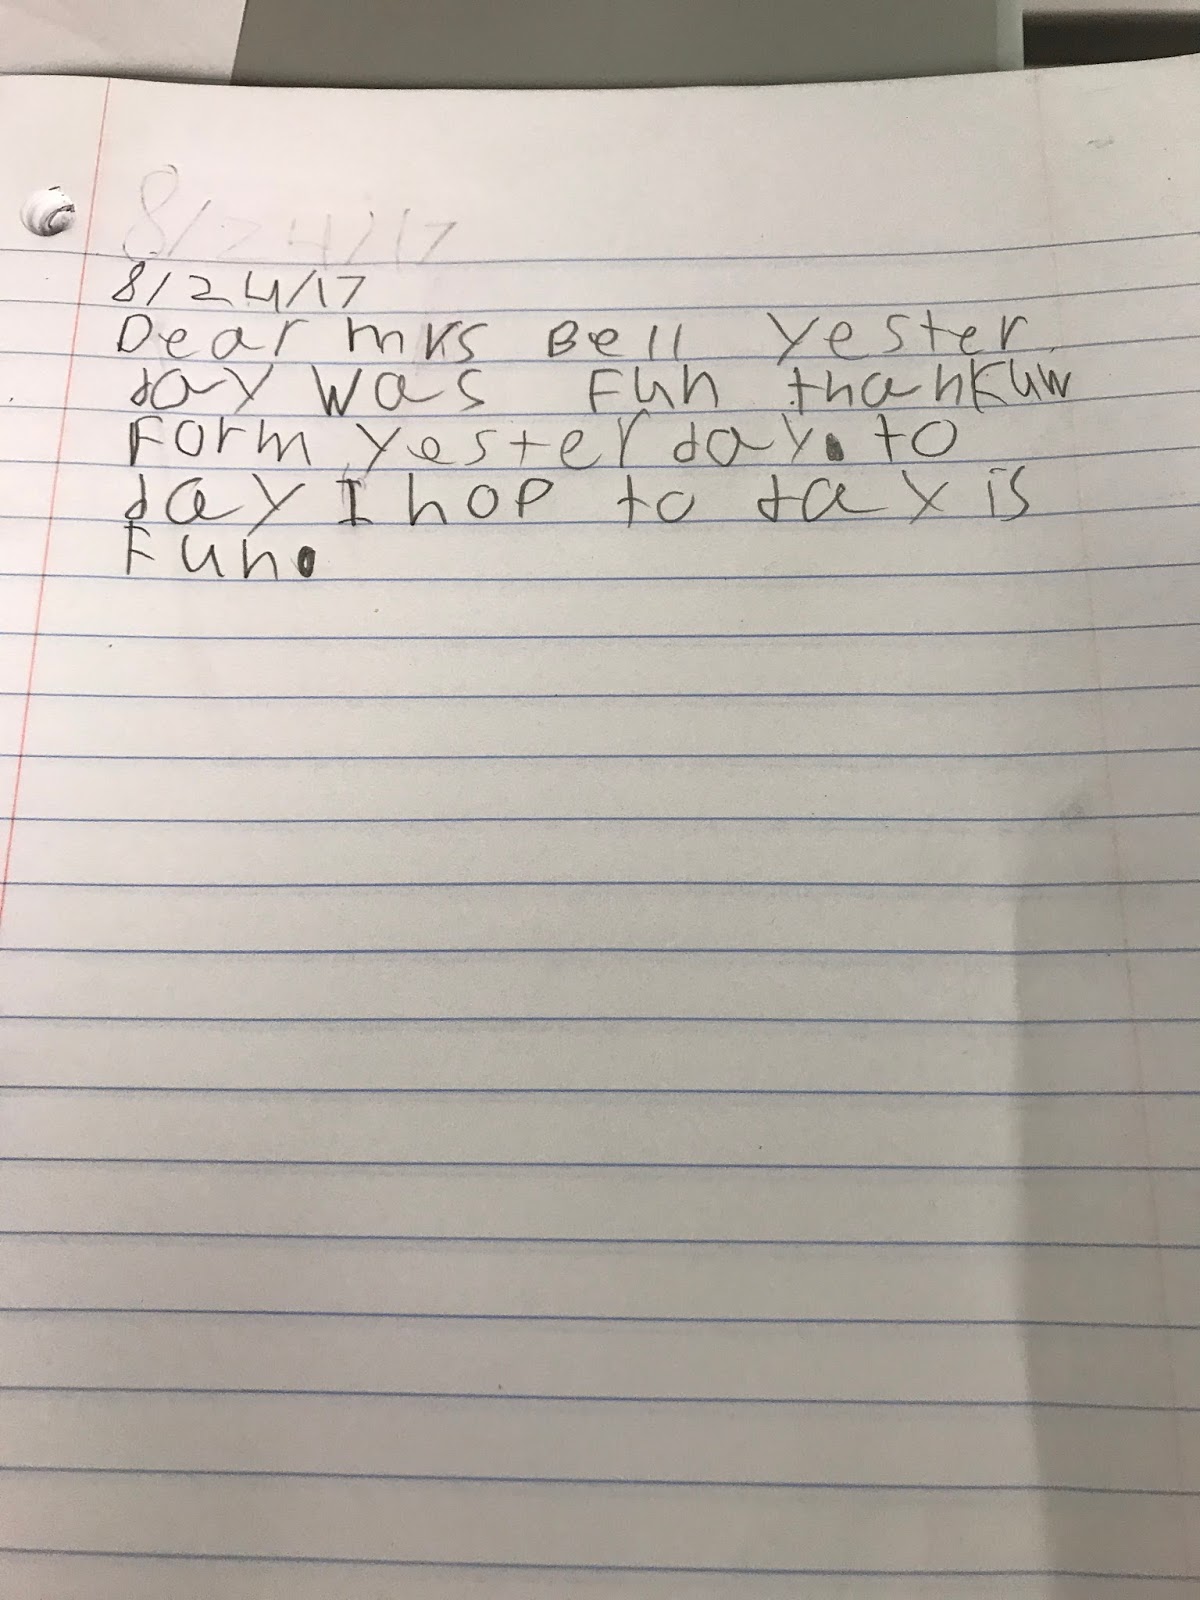 8/24/17
8/24/17
Dear mrs Bell yester
day was Fun thankuw
Form yesterday. to
day I hop to day is
Fun.